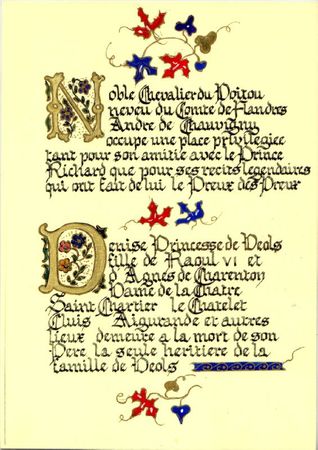 Noble Chevalier du Poitou
neveu du Comte de Flandres
Andre de Chauvigny
occupe une place privilegiee
tant pour son amitie avec le Prince
Richard que pour ses recits legendaires
qui ont fait de lui le Preux des Preux
Denise Princesse de Deols
fille de Raoul VI et
d'Agnes de Charenton
Dame de la Chatre
Saint Chartier le Chatelet
Cluis Aigurande et autres
lieux demeure a la mort de son
Pere la seule heritiere de la
famille de Deols